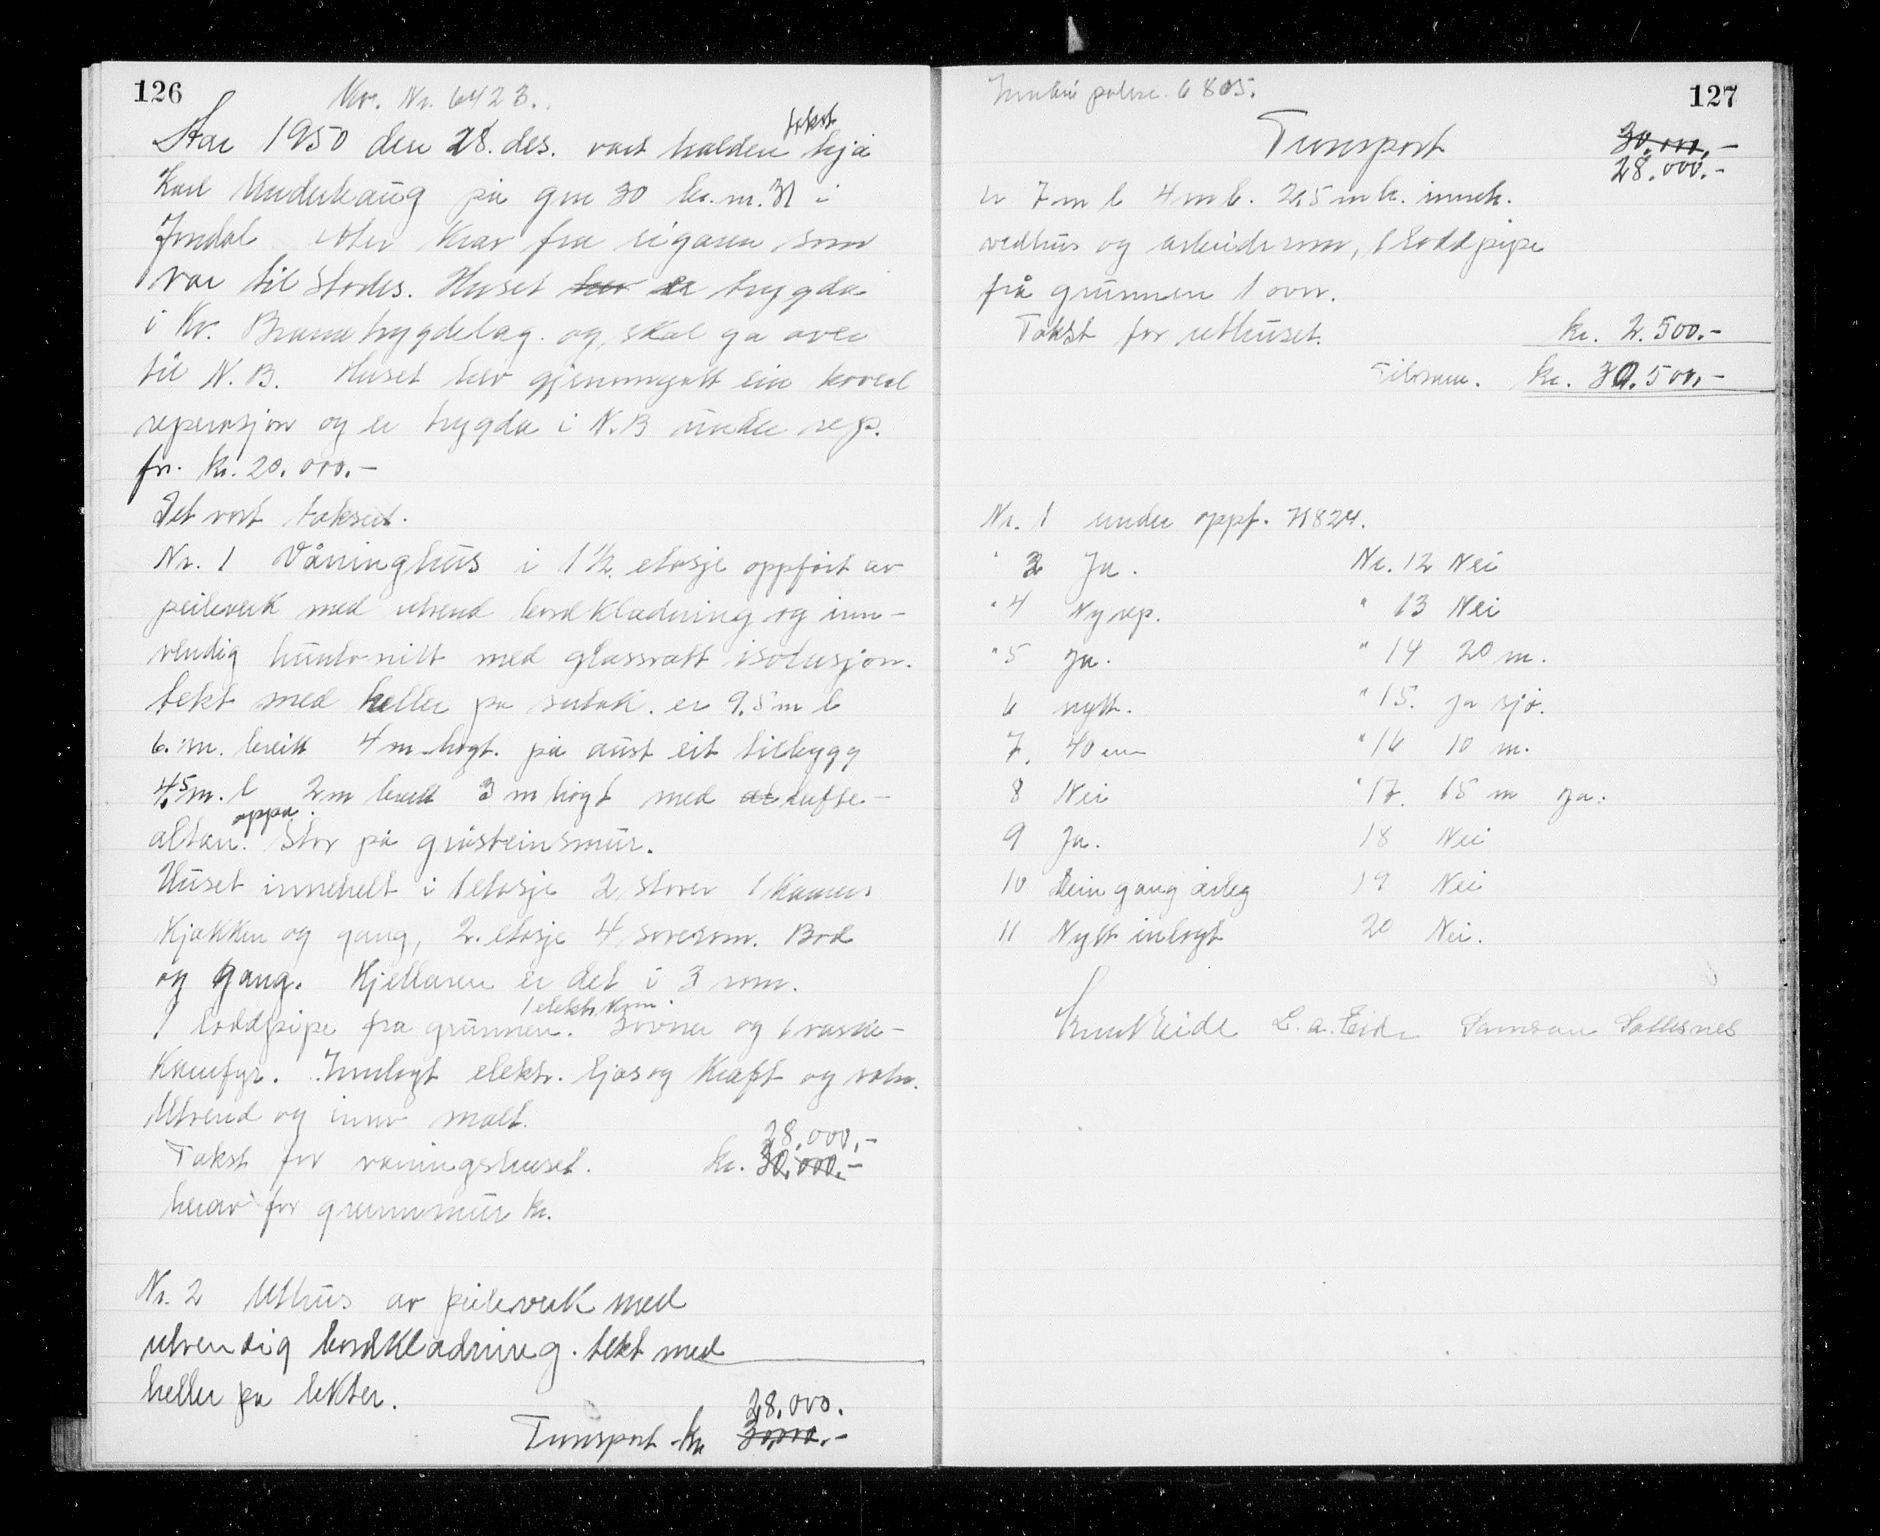 126
Kv. Nr. 6423.
Aar 1950 den 28. des. vart halden takst hjå
Karl Underhaug på gnr 30 br. nr. 31 i
Jondal etter krav fra eigaren som
var til stades. Huset hev er trygda
i Kv. Brann trygdelag. og skal ga over
til N. B. Huset hev gjennomgått ein hoved
reparasjon og er trygda i N.B under rep.
for kr. 20.000.-
Det vart taksert.
Nr. 1 Våninghus i 1 1/2. etasje oppført av
peileverk med utvend bordklædning og inn-
vendig huntonitt med glassvatt isolasjon.
tekt med heller pa sutak. er 9.5 m l
6. m. breitt 4 m høgt. på aust eit tilbygg
4.5 m. l 2 m breitt 3 m høgt med at lufte-
altan oppa. Stor på gråsteinsmur.
Huset innehelt i 1 etasje 2 stover 1 Kamers
Kjøkken og gang, 2. etasje 4 soverom. Bod
og gang. Kjellaren er det i 3 rom.
1 loddpipe fra grunnen. 1 elektr. kom. 3 ovner og 1 vaske-
Kamfyr. Innlagt elektr. ljos og Kraft og vatn.
Utvend og innv malt.
28.000,-
Takst for våningshuset. kr. 30.000.-
herav for grunnmur kr.
Nr. 2 Uthus av peileverk med
utvendig bordklædning. tekt med
heller pa lekter.
28.000.
Transport kr 30.000.-
127
polise. 6805.
Transport 30.000,-
28.000.-
er 7 m l 4 m b. 2,5 m h. inneh.
vedhus og arbeidsrom, 1 loddpipe
frå grunnen 1 ovn.
Takst for uthuset. kr. 2.500.-
Tilsam. kr. 30.500,-
Nr. 1 under oppf. 71824.
" 2 Ja. Nr. 12 Nei
" 4 Ny rep. " 13 Nei
" 5 Ja. " 14 20 m.
6 nytt. " 15. ja sjø.
7. 40 cm " 16 10 m.
8 Nei " 17. 15 m ja.
9 Ja. 18 Nei
10 Ein gang årleg 19 Nei
11 Nytt inlagt 20 Nei.
Knut Eide L. A. Eide Samson Sallesnes